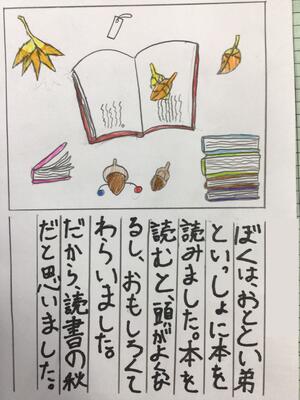 ぼくは、おととい弟
といっしょに本を
読みました。本を
読むと、頭がよくな
るし、おもしろくて
わらいました。
だから、読書の秋
だと思いました。